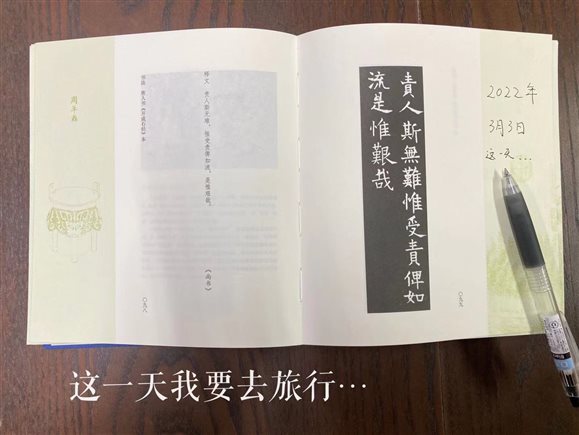 周子鼎
释文 责人斯无难,惟受责俾如流,是惟艰哉。
《尚书》
〇九八
責人斯無難惟受責俾如
流是惟艱哉
〇九九
2022年
3月3日
这一天...
这一天我要去旅行…